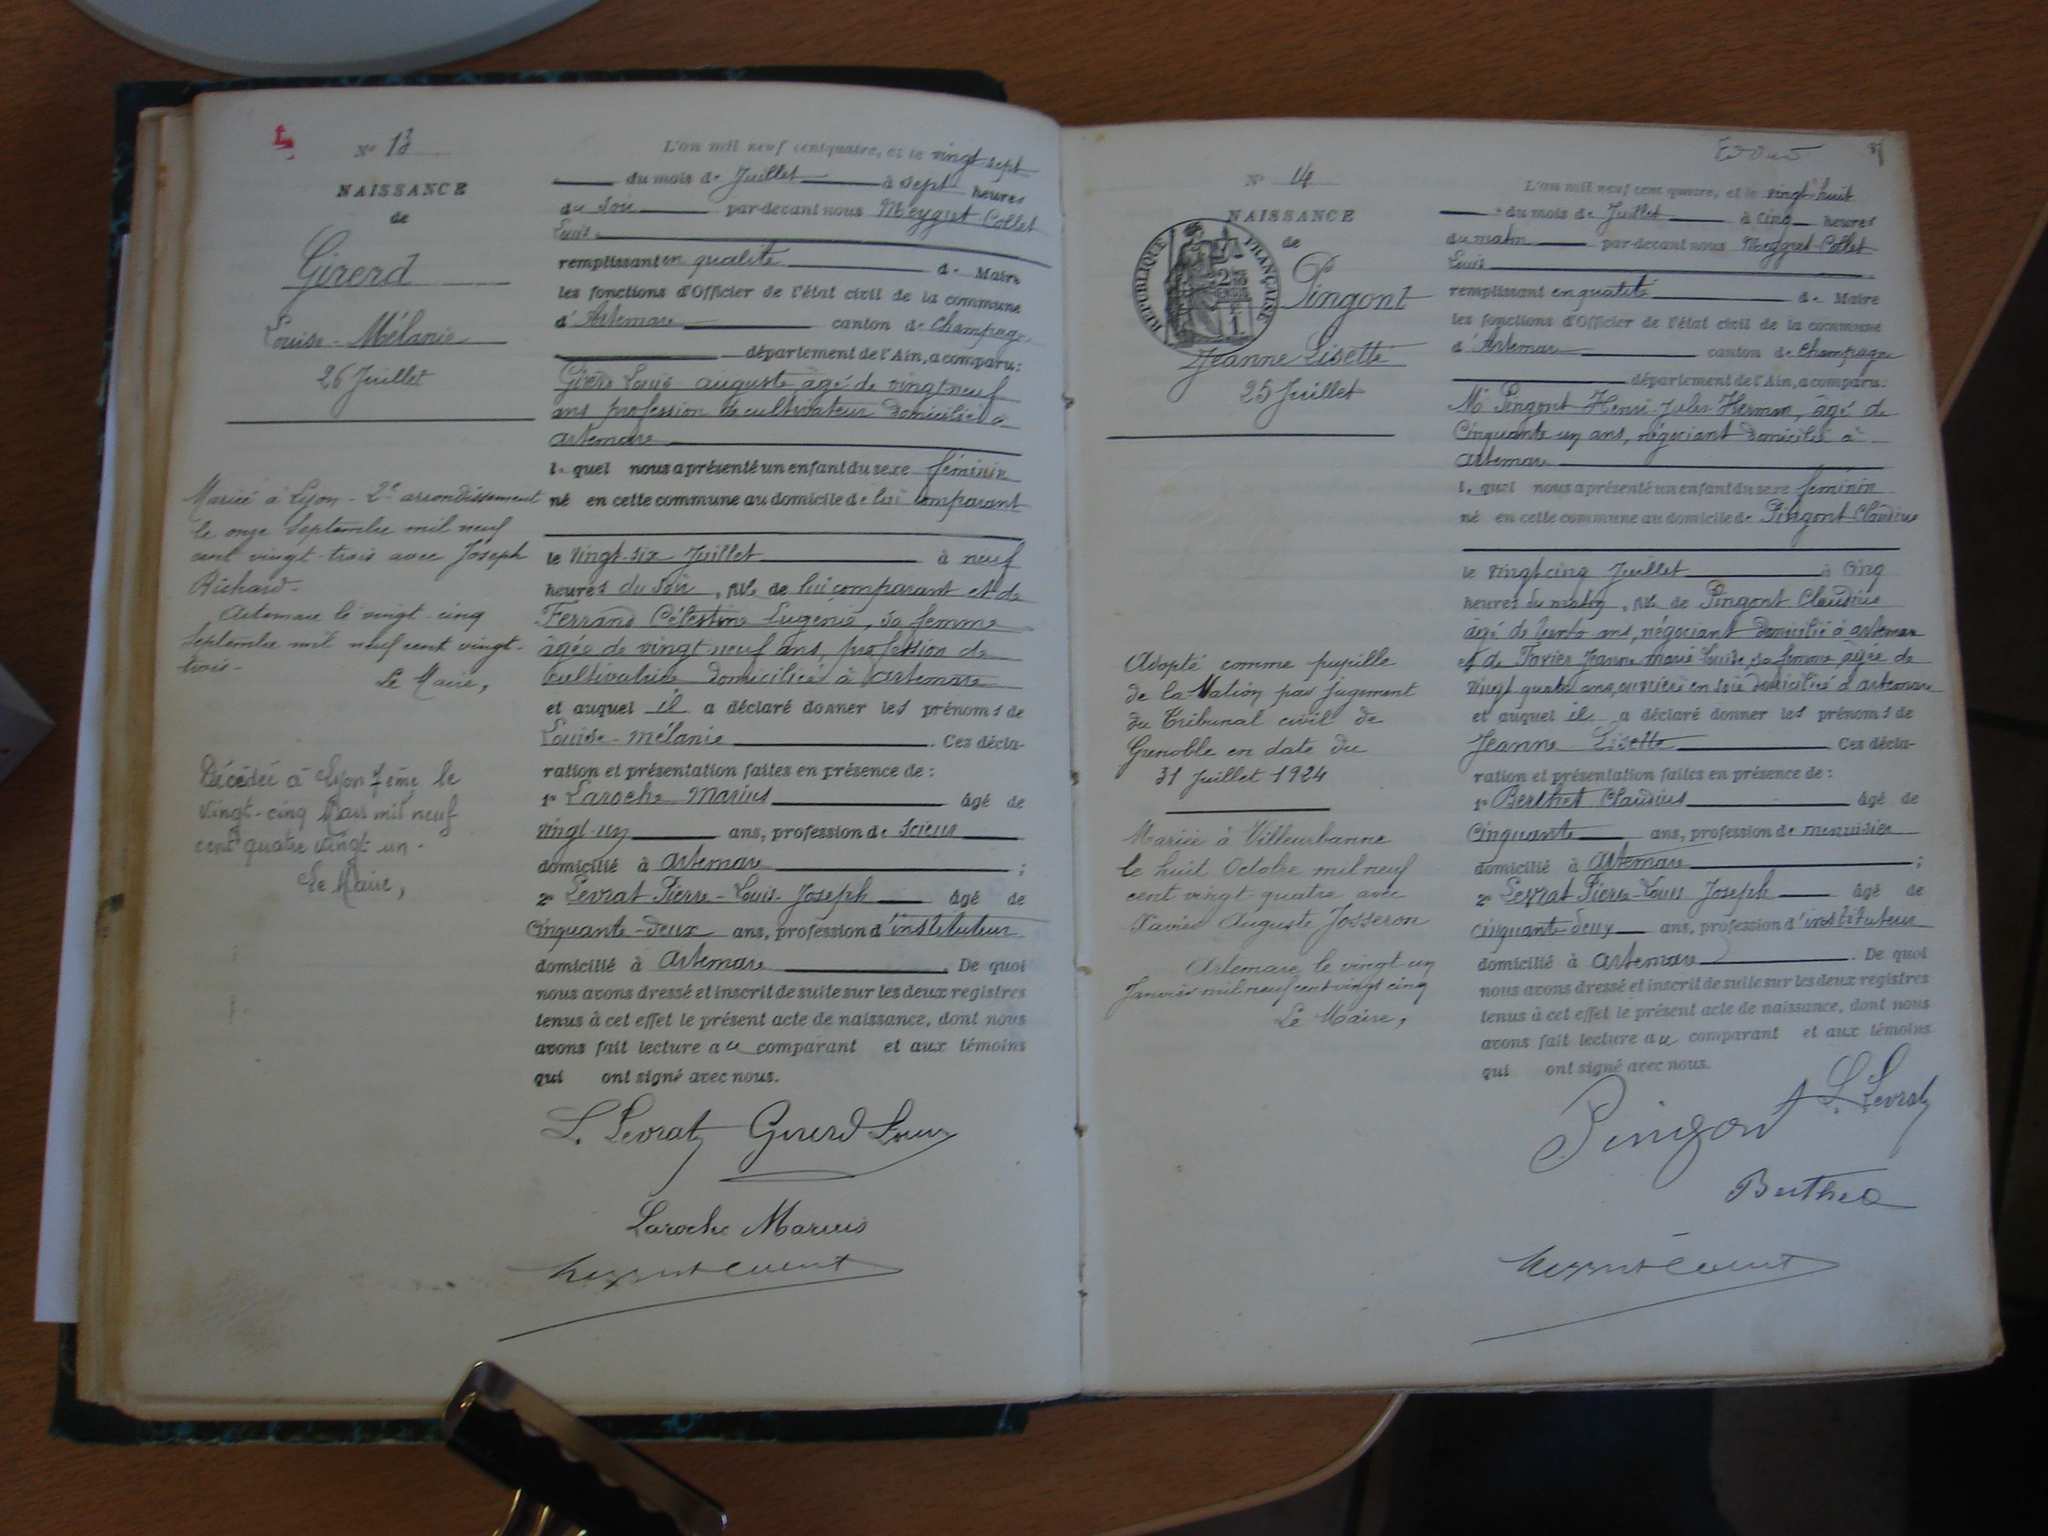 N° 13
NAISSANCE
de
Girerd
Louise-Mélanie
26 Juillet
Mariée à Lyon - 2e arrondissement
le onze Septembre mil neuf
cent vingt-trois avec Joseph
Richard.
Artemare le vingt-cinq
Septembre mil neuf cent vingt-
trois.
Le Maire,
Décédée à Lyon 7ème le
vingt-cinq Mars mil neuf
cent quatre vingt-un.
Le Maire,
L'an mil neuf cent quatre, et le vingt sept
du mois de Juillet à sept heures
du soir par-devant nous Meygret-Collet
Louis
remplissant en qualité de Maire
les fonctions d'Officier de l'état civil de la commune
d'Artemare canton de Champagne
département de l'Ain, a comparu:
Girerd Louis auguste, âgé de vingt neuf
ans profession de cultivateur domicilié à
artemare
lequel nous a présenté un enfant du sexe féminin
né en cette commune au domicile de lui comparant
le vingt-six Juillet à neuf
heures du soir, fille de lui comparant et de
Ferrand Célestine Eugénie, sa femme
âgée de vingt neuf ans, profession de
cultivatrice domiciliée à artemare
et auquel il a déclaré donner les prénoms de
Louise-mélanie. Ces décla-
ration et présentation faites en présence de:
1° Laroche Marius âgé de
vingt-un ans, profession de scieur
domicilié à artemare;
2° Levrat Pierre-Louis-Joseph âgé de
Cinquante-deux ans, profession d'instituteur
domicilié à Artemare. De quoi
nous avons dressé et inscrit de suite sur les deux registres
tenus à cet effet le présent acte de naissance, dont nous
avons fait lecture au comparant et aux témoins
qui ont signé avec nous.
L. Levrat Girerd Louis
Laroche Marius
N° 14
NAISSANCE
de
RÉPUBLIQUE FRANÇAISE
Pingont
Jeanne Lisette
25 Juillet
Adopté comme pupille
de la Nation par jugement
du Tribunal civil de
Grenoble en date du
31 Juillet 1924
Mariée à Villeurbanne
le huit Octobre mil neuf
cent vingt quatre avec
Xavier Auguste Josseron
Artemare le vingt-un
Janvier mil neuf cent vingt cinq
Le Maire,
L'an mil neuf cent quatre, et le vingt-huit
du mois de Juillet à cinq heures
du matin par-devant nous Meygret-Collet
Louis
remplissant en qualité de Maire
les fonctions d'Officier de l'état civil de la commune
d'Artemare canton de Champagne
département de l'Ain, a comparu:
Mr Pingont Henri-Jules-Herman, âgé de
Cinquante un ans, négociant domicilié à
artemare
lequel nous a présenté un enfant du sexe féminin
né en cette commune au domicile de Pingont Claudius
le vingt-cinq Juillet à Cinq
heures du matin, fille de Pingont Claudius
âgé de trente ans, négociant domicilié à artemare
et de Tavier Jeanne marie Louise, sa femme âgée de
vingt quatre ans, ouvrière en soie domiciliée à artemare
et auquel il a déclaré donner les prénoms de
Jeanne Lisette. Ces décla-
ration et présentation faites en présence de:
1° Berthet Claudius âgé de
Cinquante ans, profession de menuisier
domicilié à Artemare;
2° Levrat Pierre-Louis Joseph âgé de
cinquante deux ans, profession d'instituteur
domicilié à Artemare. De quoi
nous avons dressé et inscrit de suite sur les deux registres
tenus à cet effet le présent acte de naissance, dont nous
avons fait lecture au comparant et aux témoins
qui ont signé avec nous.
Pingont L. Levrat
Berthet